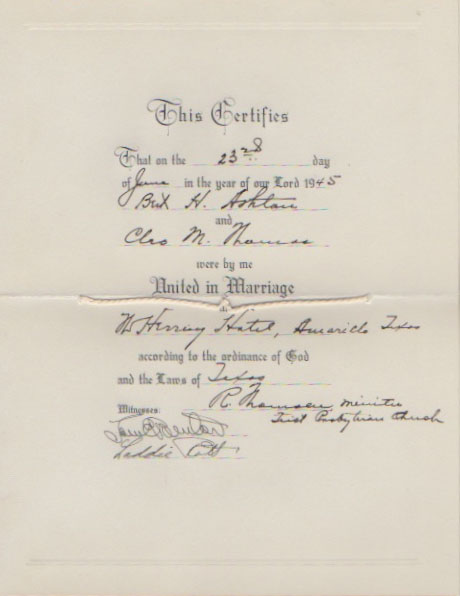 This Certifies
That on the 23rd day
of June in the year of our Lord 1945
H. Ashton
and
Cleo M. Thomas
were by me
United in Marriage
at
Herring Hotel, Amarillo Texas
according to the ordinance of God
and the Laws of Texas
R. Thomsen Minister
First Presbyterian Church
Witnesses:
Laddie